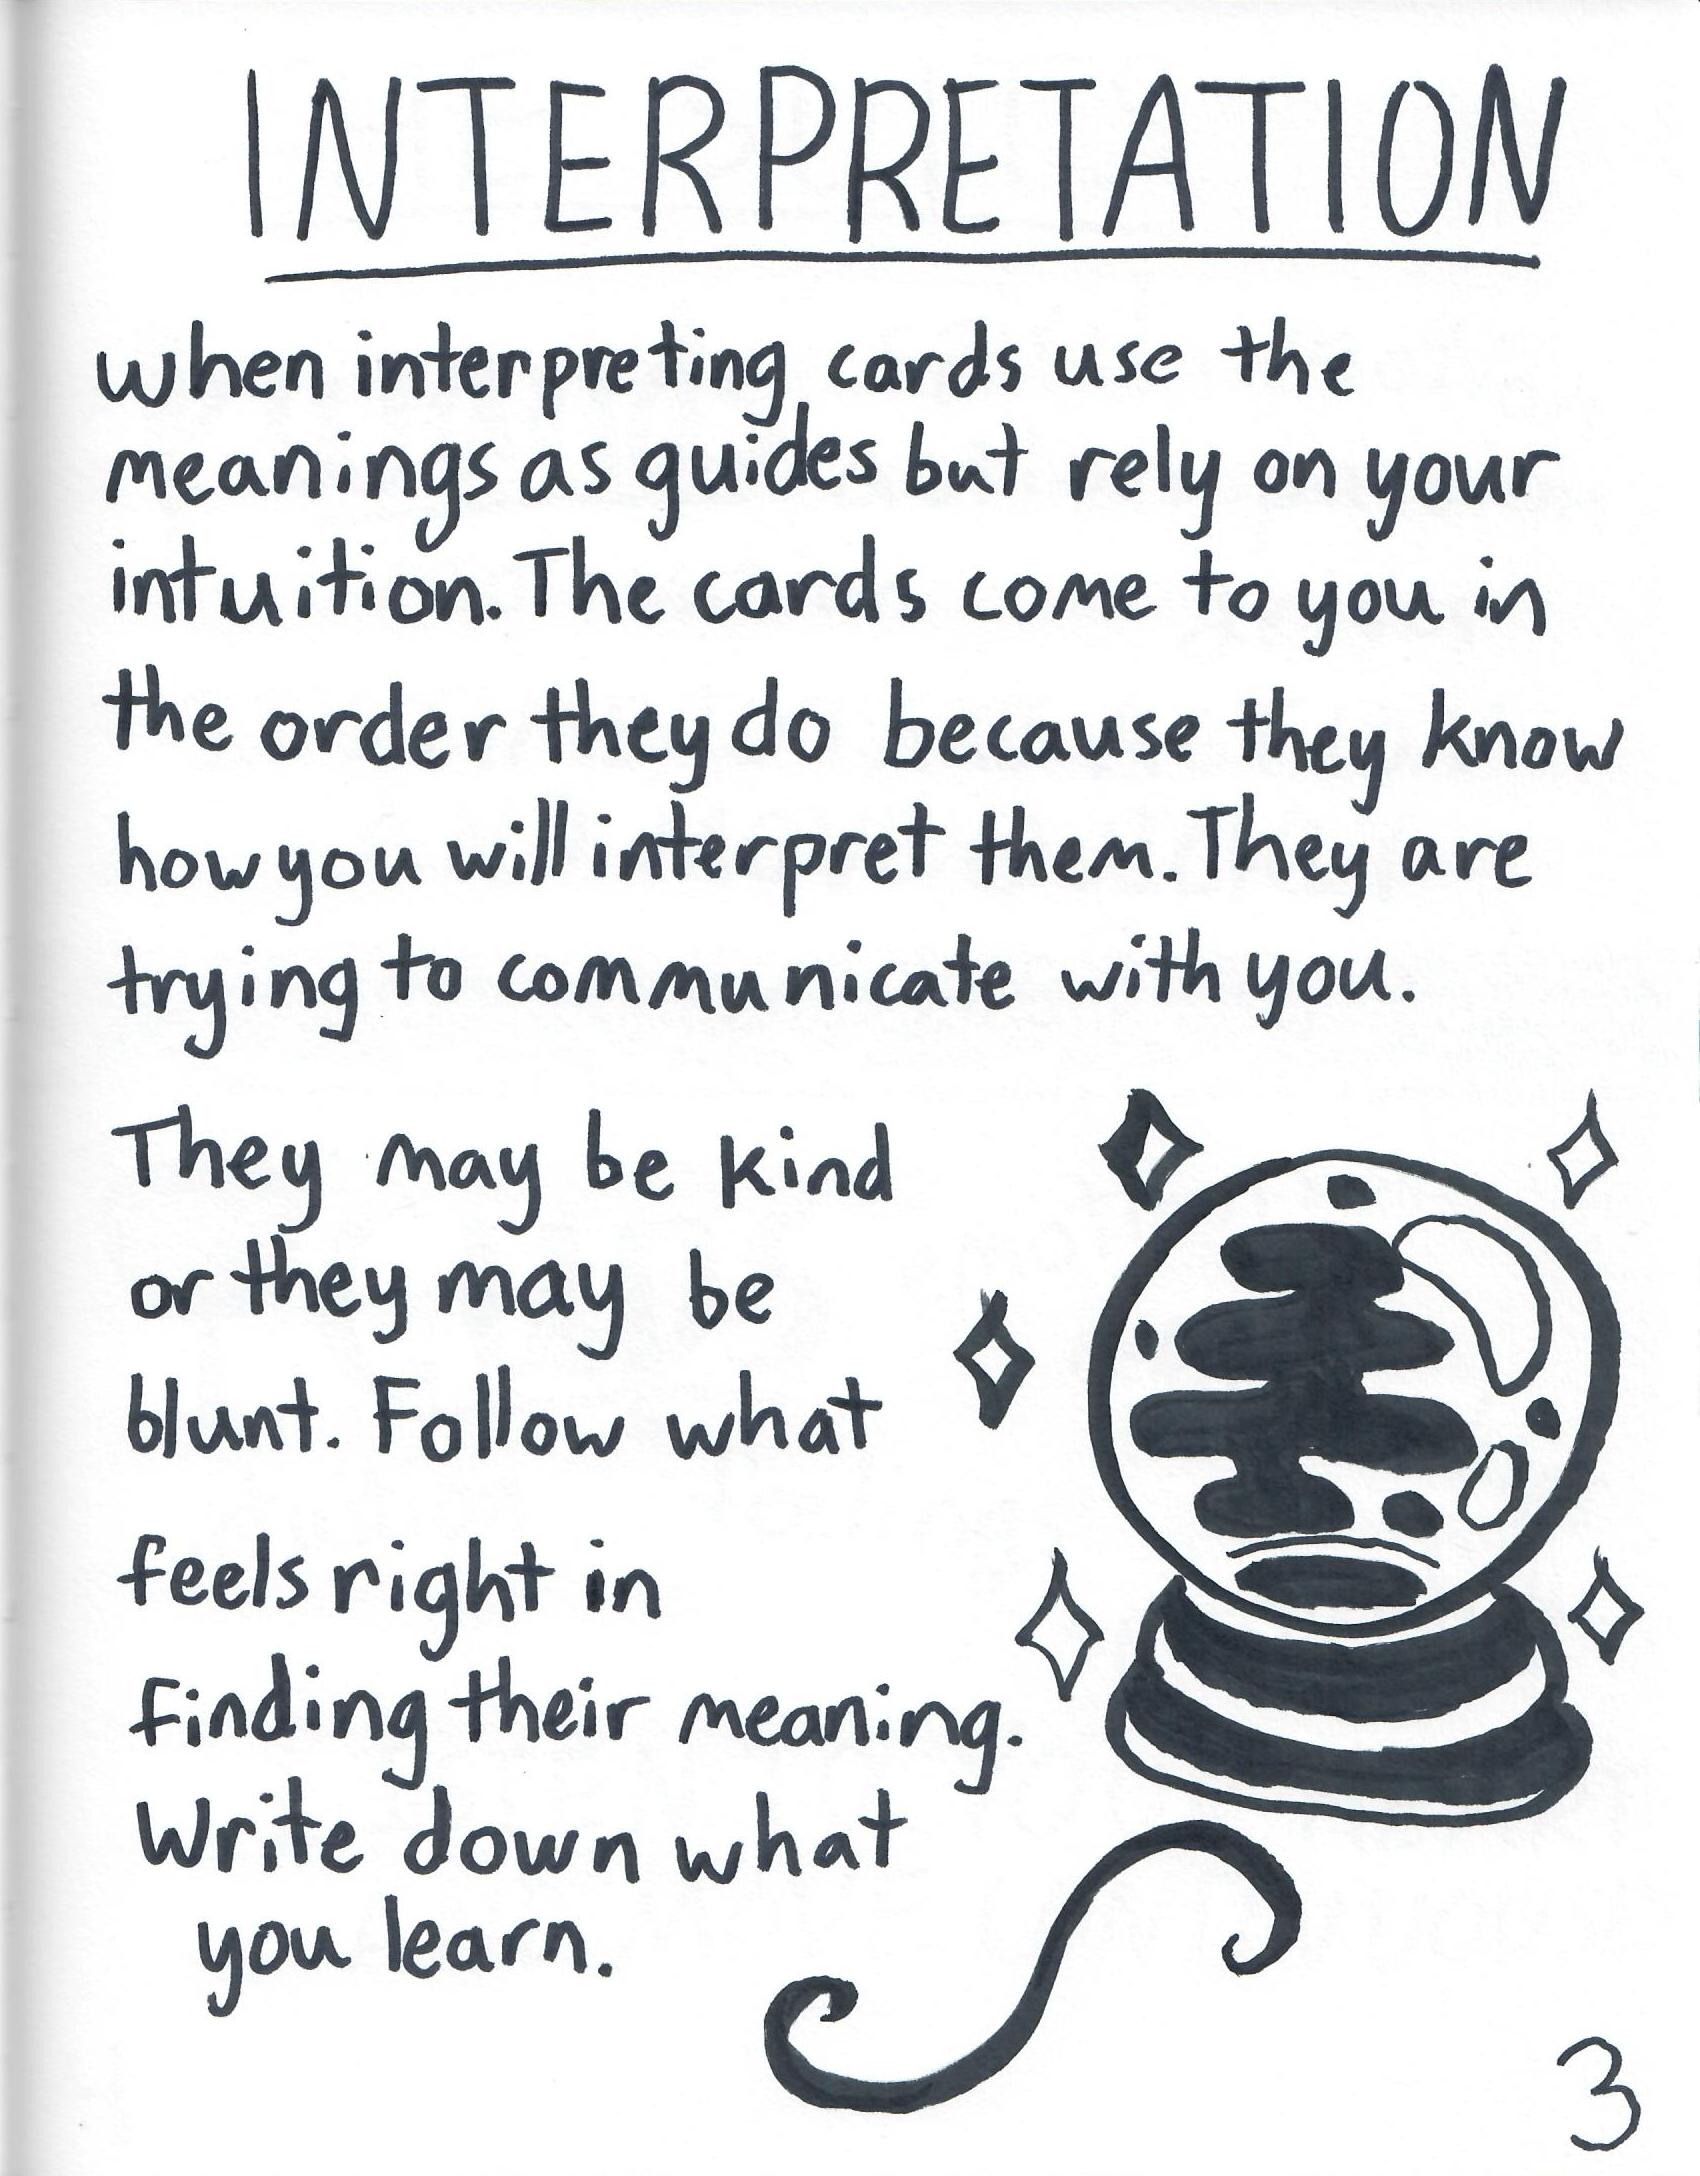 INTERPRETATION
when interpreting cards use the
meanings as guides but rely on your
intuition. The cards come to you in
the order they do because they know
how you will interpret them. They are
trying to communicate with you.
They may be kind
or they may be
blunt. Follow what
feels right in
finding their meaning.
Write down what
you learn.
3